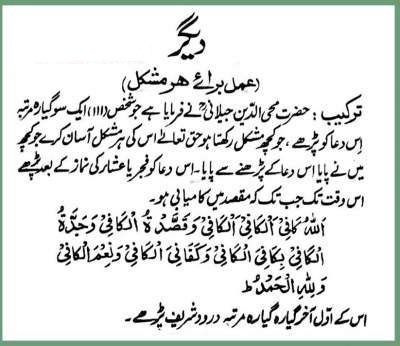 دیگر
(عمل برائے ہر مشکل)
ترکیب: حضرت محی الدین جیلانیؒ نے فرمایا ہے جو شخص (۱۱۱) ایک سو گیارہ مرتبہ
اِس دعا کو پڑھے، جو کچھ مشکل رکھتا ہو حق تعالےٰ اس کی ہر مشکل آسان کرے جو کچھ
میں نے پایا اس دعا کے پڑھنے سے پایا۔ اس دعا کو فجر یا عشاء کی نماز کے بعد پڑھے
اس وقت تک جب تک کہ مقصد میں کامیابی ہو۔
اَللّٰهُ كَافِىْ اَلْكَافِىْ اَلْكَافِىْ وَقَصَّدْ ةُ الْكَافِىْ وَجَدَّةُ
الْكَافِىْ بِكَافِىَ الْكَافِىْ وَكَفَانِىَ الْكَافِىْ وَلِعِمَ الْكَافِىْ
وَلِلّٰهِ الْحَمْدُ ط
اس کے اوّل آخر گیارہ گیارہ مرتبہ درود شریف پڑھے۔